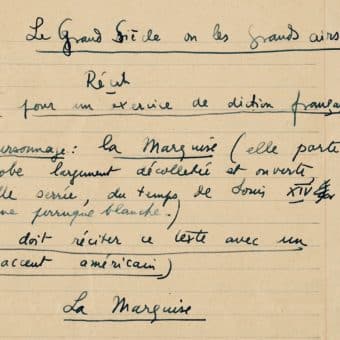 Le Grand Siècle ou les grands airs
Récit
pour un exercice de diction françai
ersonnage : la Marquise (elle porte
obe largement décolletée et ouverte
lle serrée, du temps de Louis XIV
ne perruque blanche.)
doit réciter ce texte avec un
accent américain)
La Marquise